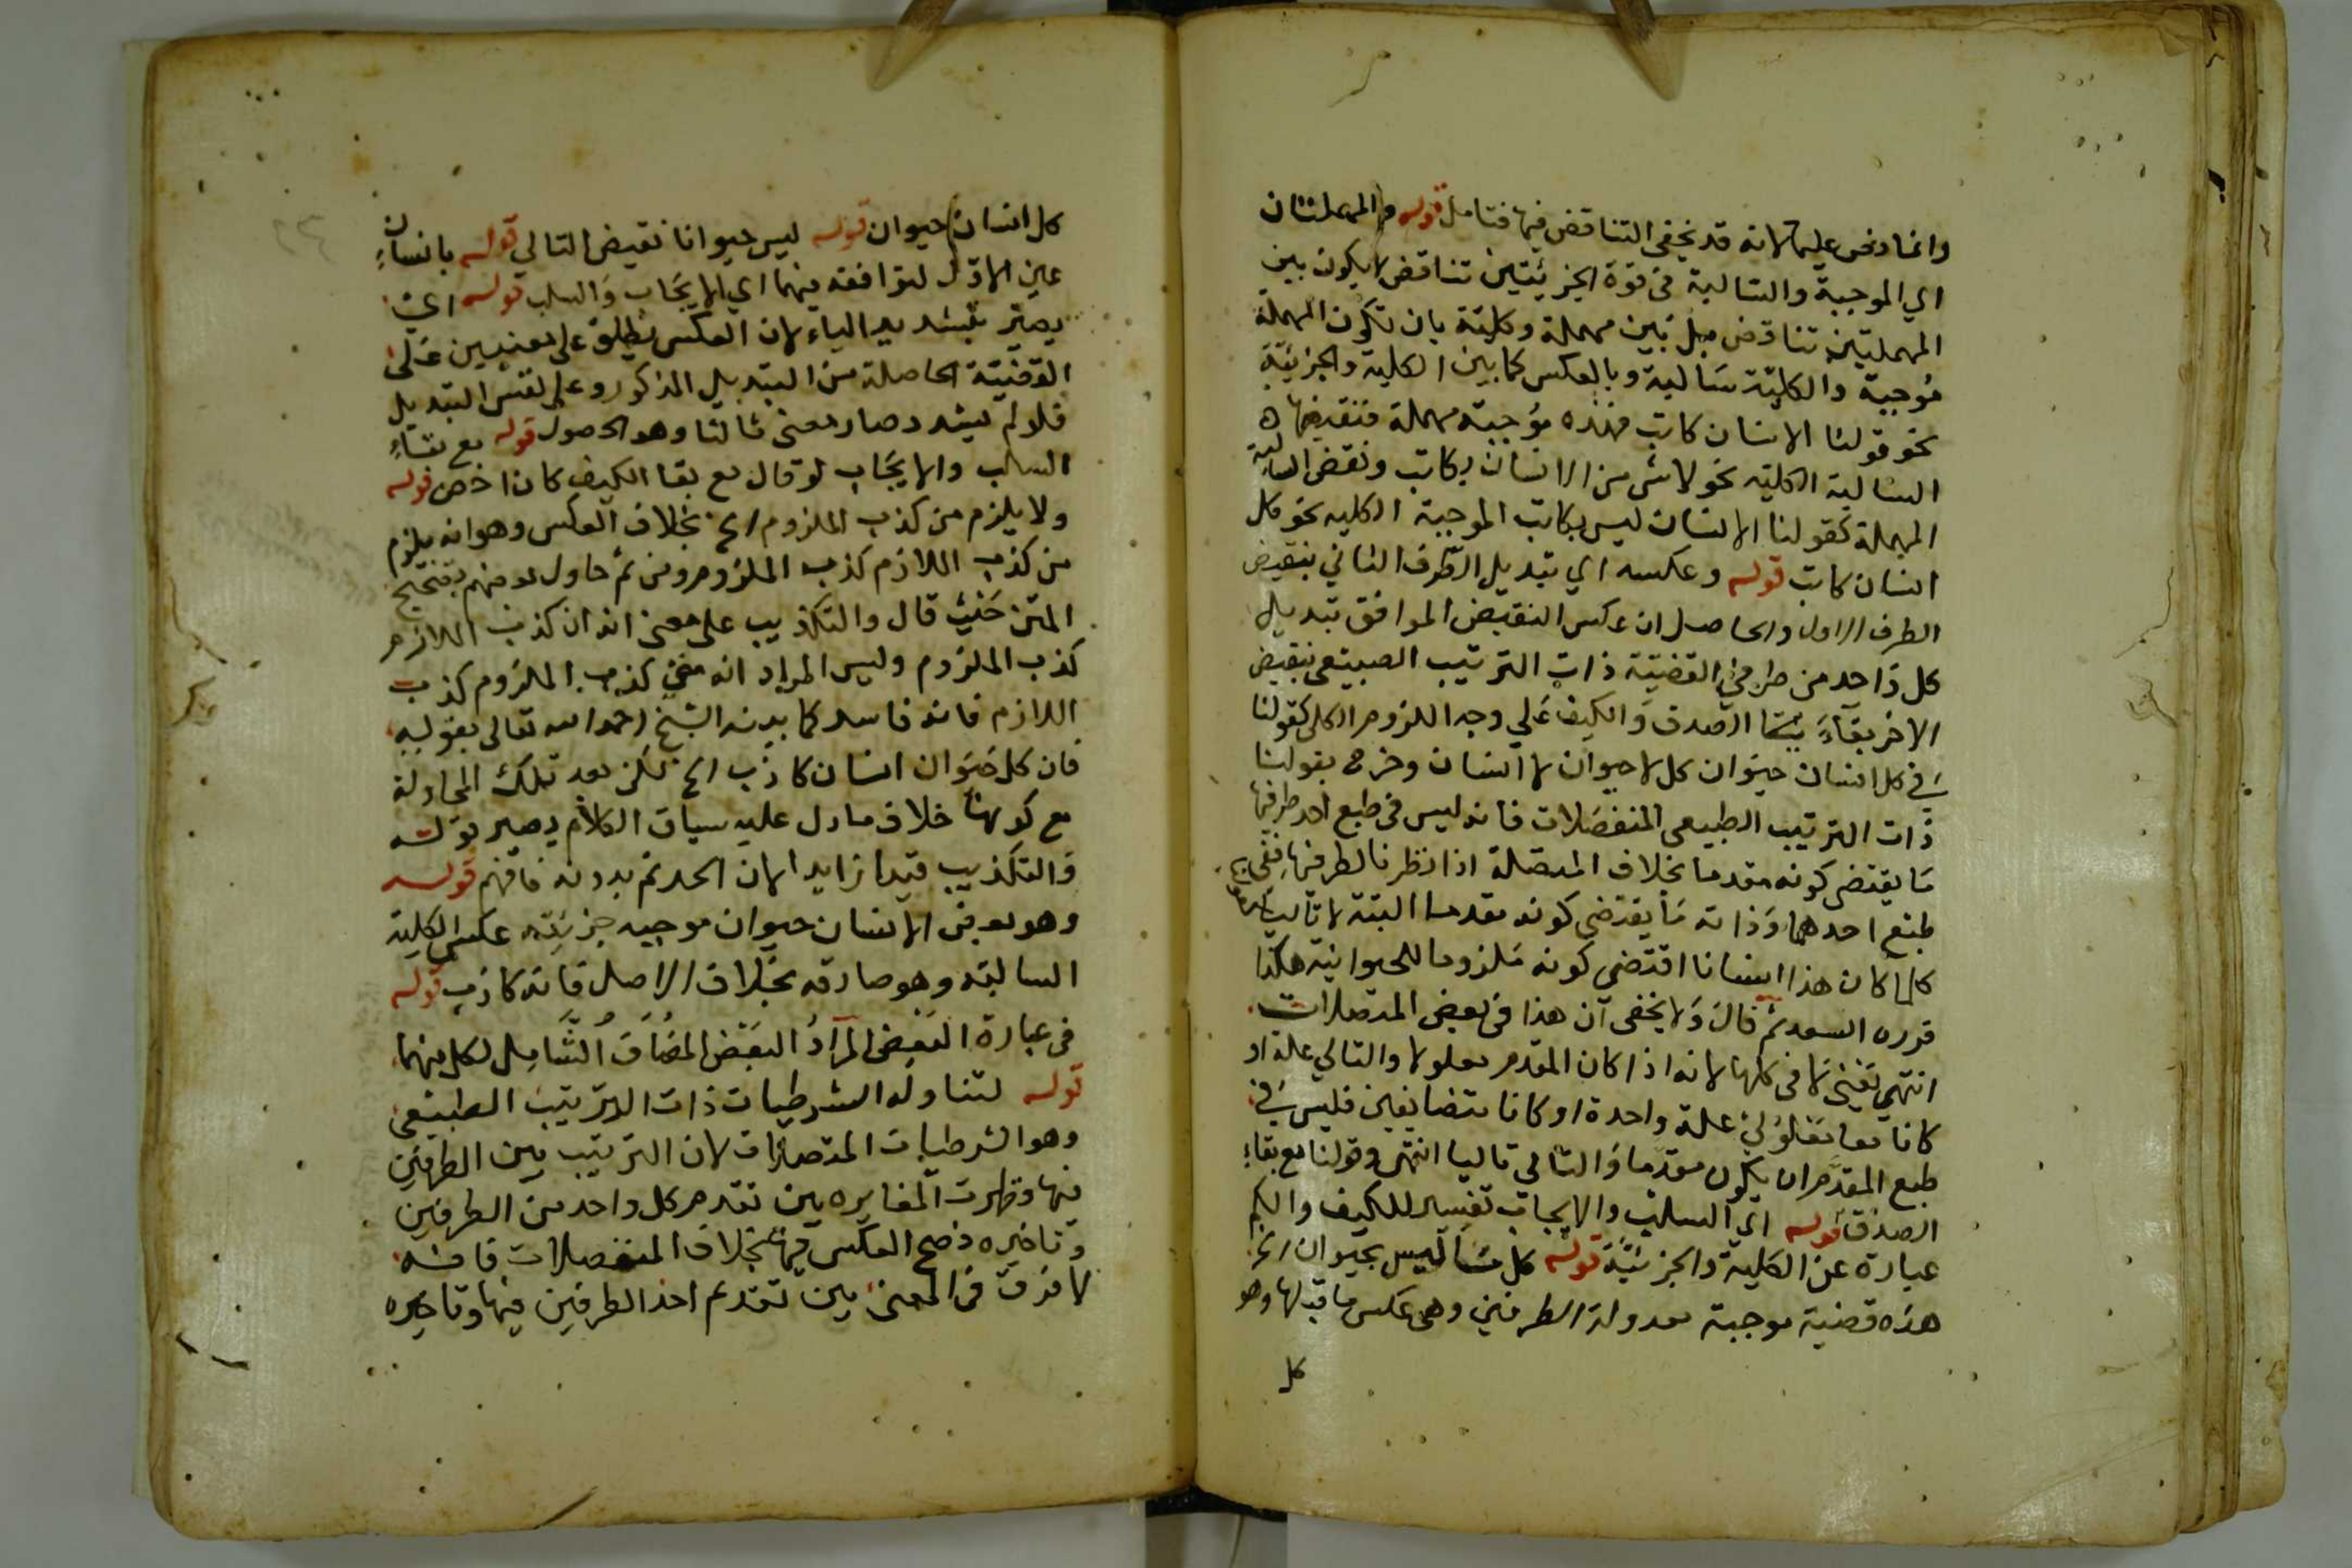 وانما نص عليها لانه قد يخفى التناقض فيها فتامل قوله والمهملتان
اي الموجبة والسالبة فى قوة الجزئيتين تناقض لا يكون بين
المهملتين تناقض بل بين مهملة وكلية بان تكون المهملة
موجبة والكلية سالبة وبالعكس كما بين الكلية والجزئية
نحو قولنا الانسان كاتب فهذه موجبة مهملة فنقيضها
السالبة الكلية نحو لا شى من الانسان بكاتب ونقض السالبة
المهملة كقولنا الانسان ليس بكاتب الموجبة الكليه نحو كل
انسان كاتب قوله وعكسه اي تبديل الطرف الثاني بنقيض
الطرف الاول والحاصل ان عكس النقيض الموافق تبديل
كل واحد من طرفي القضية ذات الترتيب الطبيعي بنقيض
الاخر بقآء الصدق والكيف على وجه اللزوم الكلى كقولنا
في كل انسان حيوان كل لا حيوان لا انسان وخرج بقولنا
ذات الترتيب الطبيعى المنفصلات فانه ليس فى طبع احد طرفيها
ما يقتضى كونه مقدما بخلاف المتصلة اذا نظرنا لطرفيها ففى
طبع احدهما وذاته ما يقتضى كونه مقدما البتة لا تاليا
كلما كان هذا انسانا اقتضى كونه ملزوما للحيوانية هكذا
قرره السعد ثم قال ولا يخفى ان هذا فى بعض المتصلات
انتهى يعنى لا فى كلها لانه اذا كان المقدم معلولا والتالي علة او
كانا معا معلولي علة واحدة او كانا متضايفين فليس في
طبع المقدم ان يكون مقدما والتالى تاليا انتهى وقولنا مع بقاء
الصدق قوله اى السلب والايجاب تفسير للكيف والكم
عبارة عن الكلية والجزئية قوله كل ما ليس بحيوان الخ
هذه قضية موجبة معدولة الطرفين وهى عكس ما قبلها وهو
كل
كل انسان حيوان قوله ليس حيوانا نقيض التالى قوله بانسان
عين الاول لتوافقه فيهما اي الايجاب والسلب قوله اي
يصير بتشديد الياء لان العكس يطلق على معنيين على
القضية الحاصلة من التبديل المذكور وعلى نفس التبديل
فلو لم يشدد صار معنى ثالثا وهو الحصول قوله مع بقاء
السلب والايجاب لو قال مع بقا الكيف كان اخص قوله
ولا يلزم من كذب الملزوم الخ بخلاف العكس وهو انه يلزم
من كذب اللازم كذب الملزوم ومن ثم حاول بعضهم تصحيح
المتن حيث قال والتكذيب على معنى انه ان كذب اللازم
كذب الملزوم وليس المراد انه متى كذب الملزوم كذب
اللازم فانه فاسد كما بينه الشيخ رحمه الله تعالى بقوله
فان كل حيوان انسان كاذب الخ لكن بعد تلك المحاولة
مع كونها خلاف ما دل عليه سياق الكلام يصير قوله
والتكذيب قيدا زايدا لان الحد تم بدونه فافهم قوله
وهو بعض الانسان حيوان موجبه جزئيه عكس الكلية
السالبة وهو صادقه بخلاف الاصل فانه كاذب قوله
فى عبارة البعض المراد البعض المضاف الشامل لكل منهما
قوله لتناوله الشرطيات ذات الترتيب الطبيعى
وهو الشرطيات المتصلات لان الترتيب بين الطرفين
فيها وظهرت المغايره بين تقدم كل واحد من الطرفين
وتاخيره فصح العكس فيها بخلاف المنفصلات فانه
لا فرق فى المعنى بين تقدم احد الطرفين فيها وتاخيره